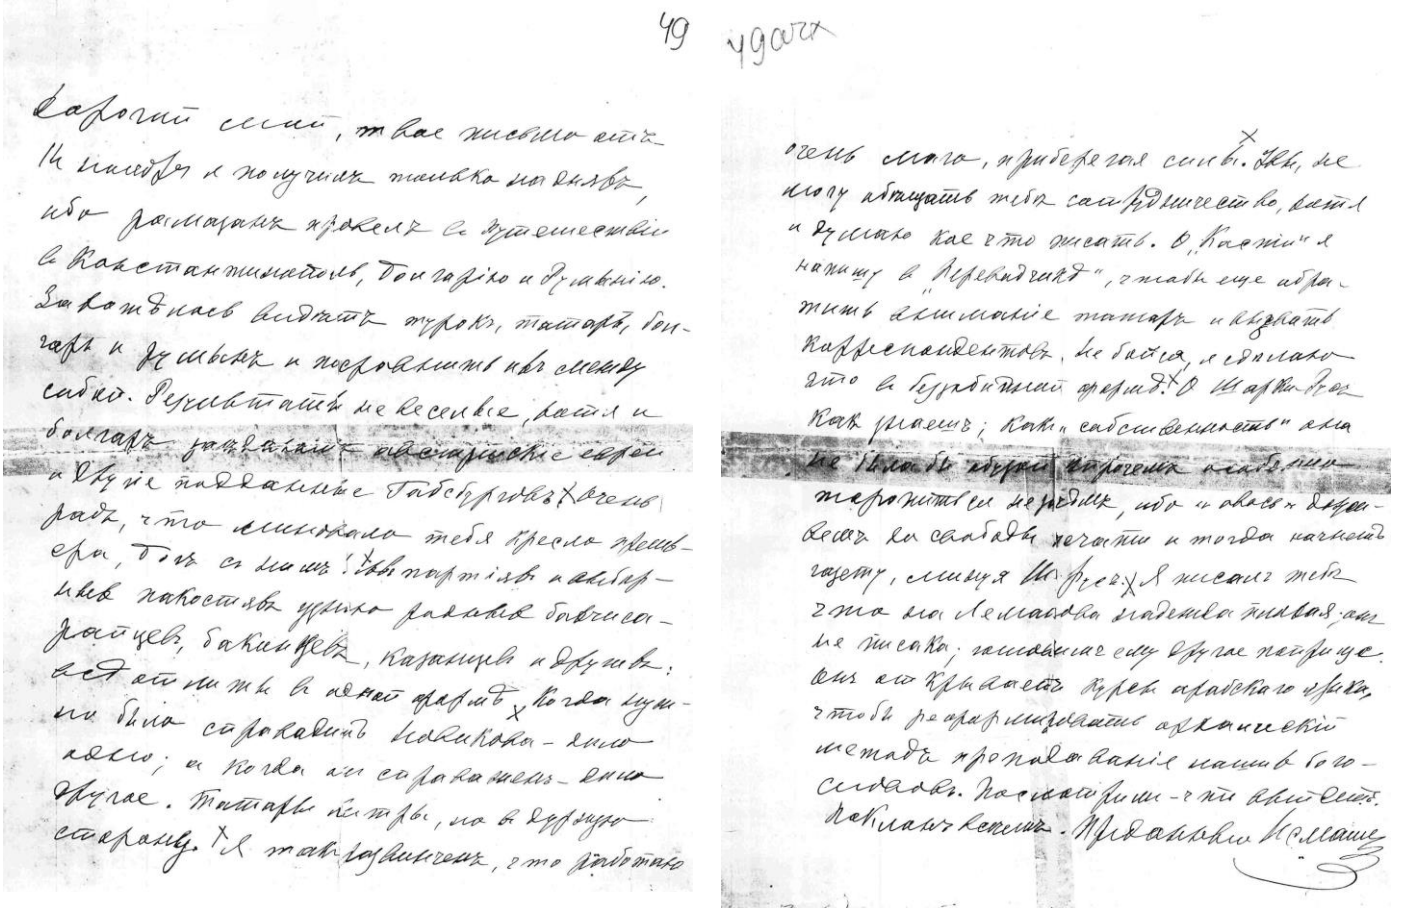 49
Дорогой мой, твое письмо отъ
14 ноября я получилъ только на дняхъ,
ибо рамазанъ провелъ въ путешествіи
в Константинополь, Болгарію и Румынію.
Захотѣлось видѣть турокъ, татаръ, бол-
гаръ и румынъ и посравнить ихъ между
собой. Результаты не веселые, хотя и
болгаръ австрійскіе евреи
и другіе подданные Габсбурговъ. Очень
радъ, что миновало тебя кресло
Богъ съ нимъ! Въ партіяхъ и
пакостяхъ узнаю родныхъ бахчиса-
райцевъ, бакинцевъ, казанцевъ и другихъ:
в одной формѣ. Когда нуж-
но было спровадить Новикова – дѣло
одно; а когда он спроважен – дѣло
другое. Татары хитры, но в дурную
сторону. Я так развинченъ, что работаю
49 об
очень мало, приберегая силы. не
могу обѣщать тебѣ сотрудничество, хотя
и думаю кое что писать. О „Каспіи" я
напишу в „Переводчикѣ", чтобы еще обра-
тить вниманіе татаръ и вызвать
корреспондентовъ. Не бойся, я сдѣлаю
это в безобидной формѣ. О Шарки Русъ
как знаешь; как „собственность" она
не была бы обузой впрочемъ особенно
торопиться не слѣдъ, ибо „авось"
до свободы печати и тогда начнешь
газету, минуя Ш. Русъ. Я писалъ тебѣ
что на Леманова надежда плохая; онъ
не писака; готовимъ ему другое поприще.
Онъ открываетъ курсы арабскаго языка,
чтобы реформировать архаическій
методъ преподаванія нашихъ бого-
слововъ. Посмотримъ – что выйдетъ.
Поклонъ всѣмъ. Преданный Исмаилъ